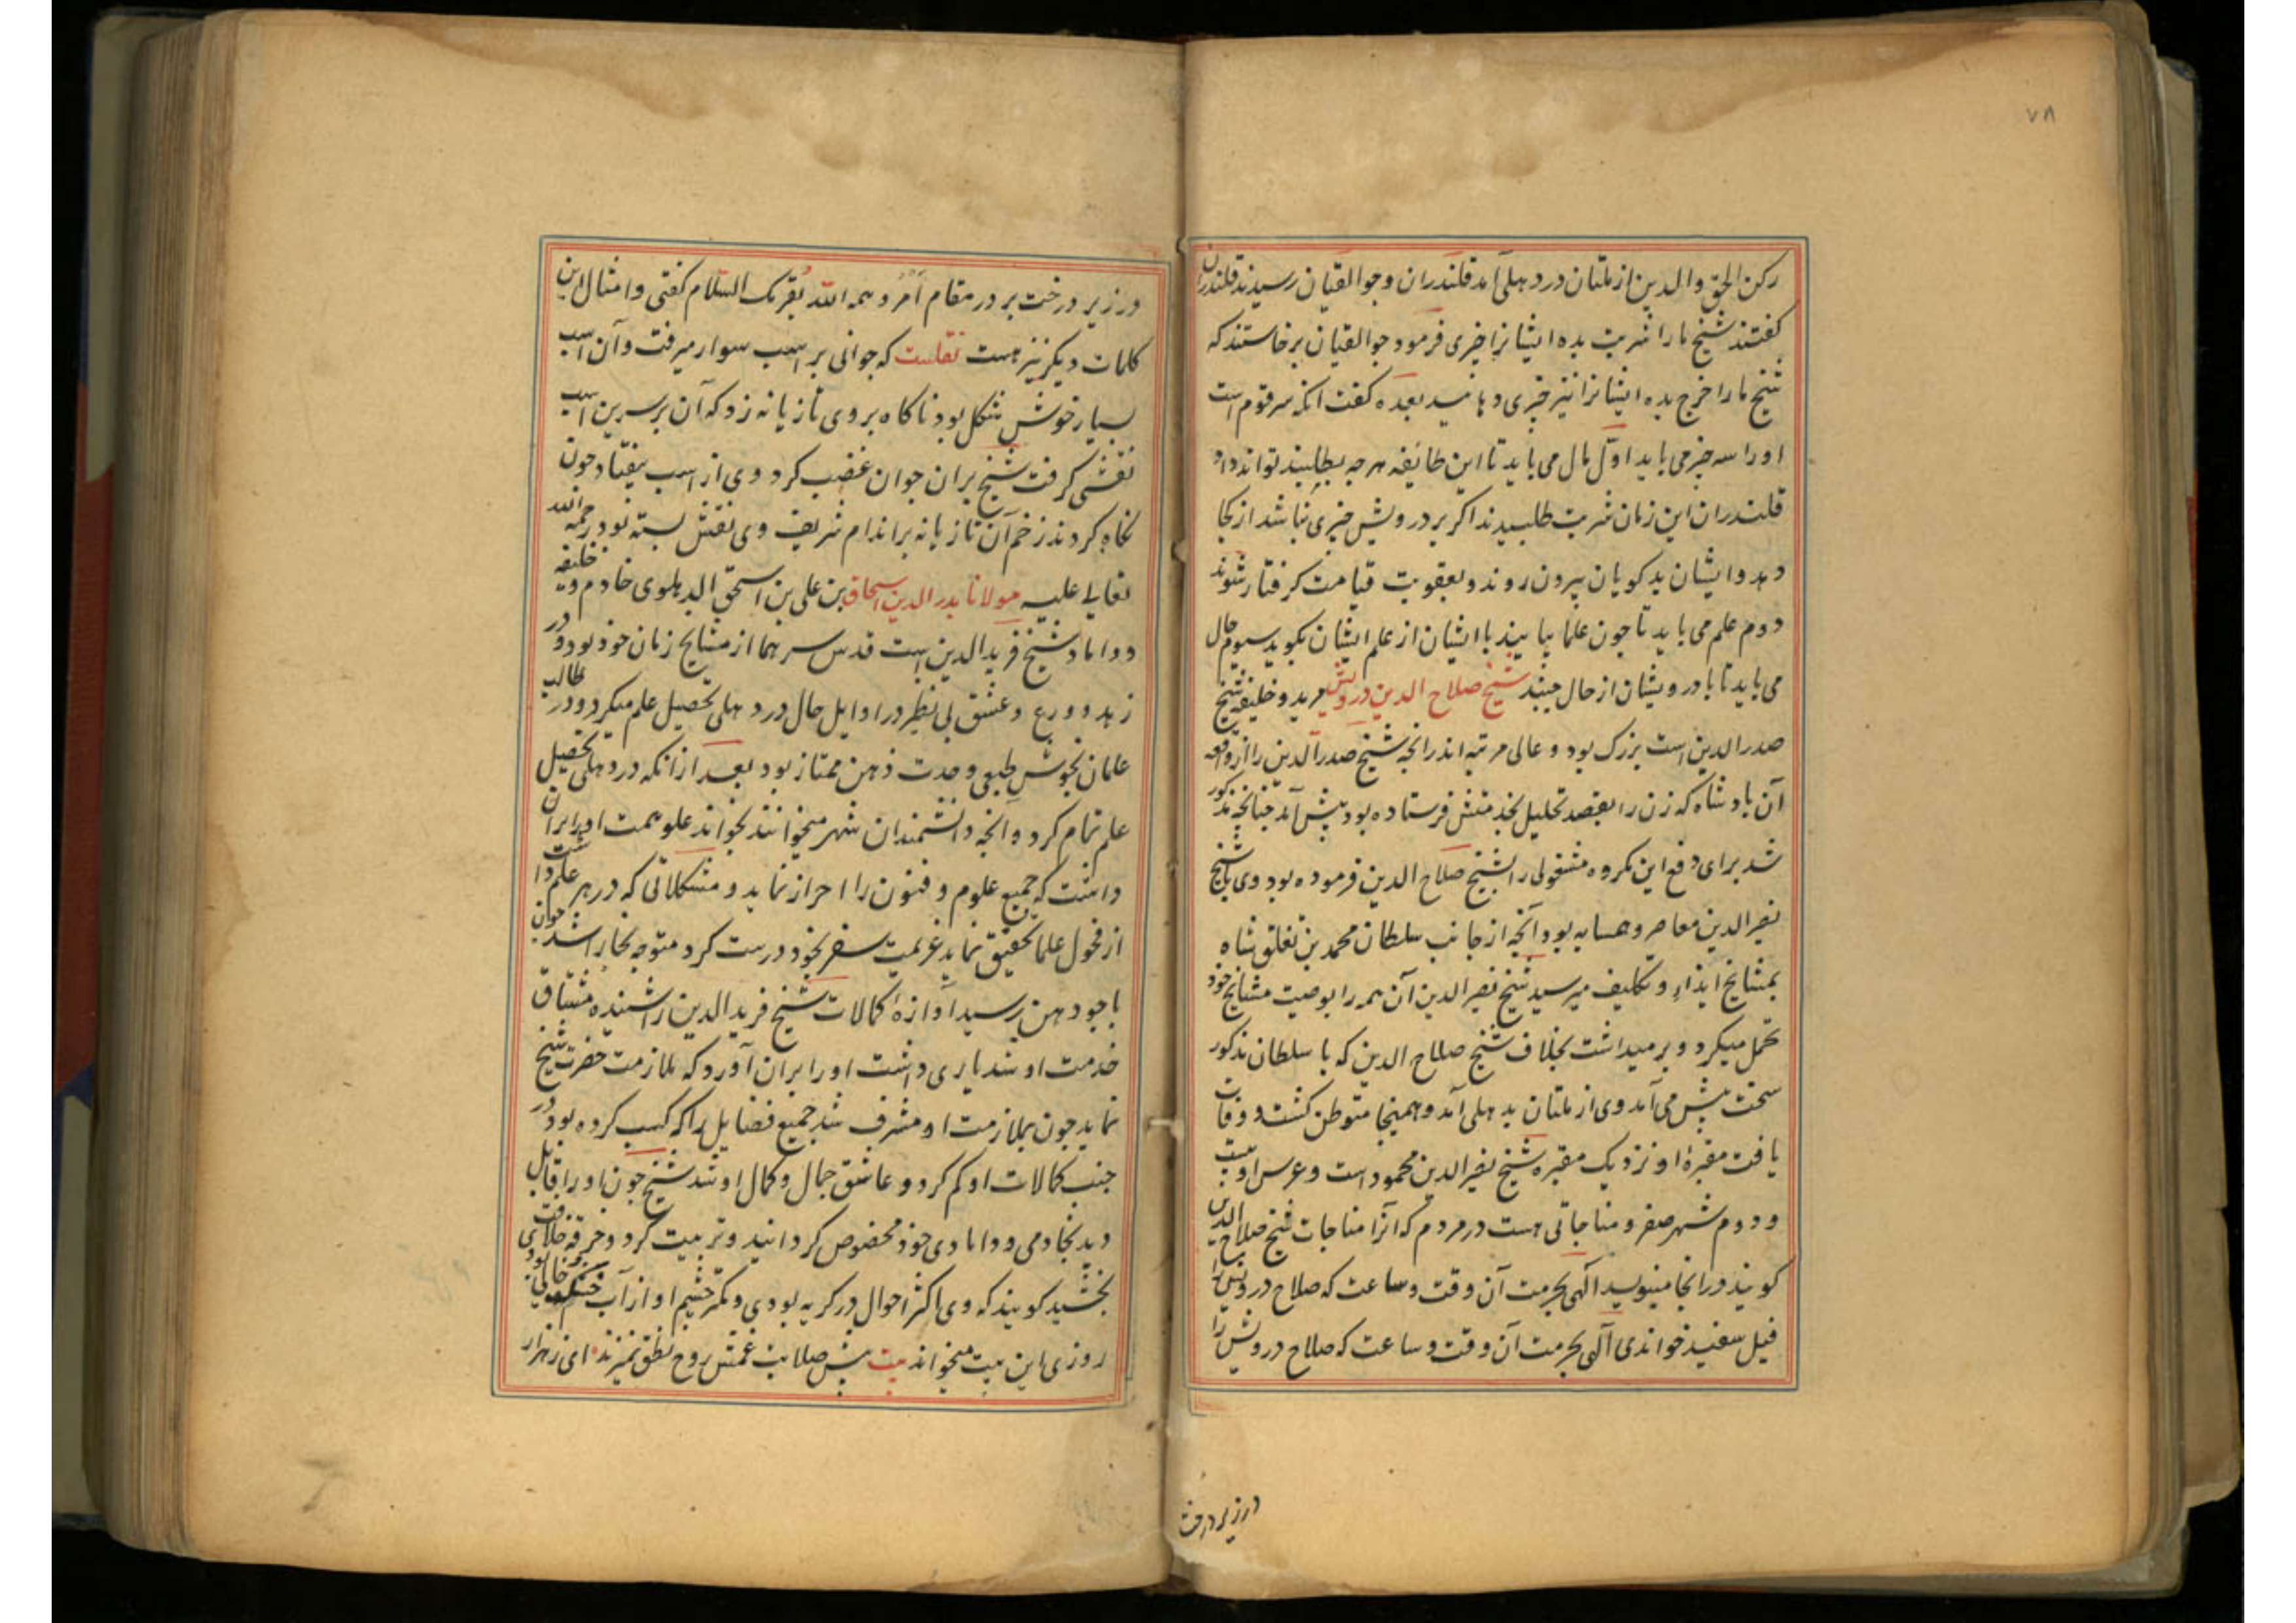 ۷۸
رکن الحق والدین از ملتان در دهلی آمد قلندران وجوالقیان رسیدند قلندران
کفتند شیخ ما را شربت بده ایشانرا چیزی فرمود جوالقیان برخاستند که
شیخ ما را خرج بده ایشانرا نیز چیزی دهانید بعده کفت انکه سر قوم است
او را سه چیز می باید اول مال می باید تا این طایفه هر چه بطلبند تواند داد
قلندران این زمان شربت طلبیدند اکر بر درویش چیزی نباشد از کجا
دهد و ایشان بد کویان بیرون روند و بعقوبت قیامت کرفتار شوند
دوم علم می باید تا چون علما بیایند با ایشان از علم ایشان بکوید سیوم حال
می باید تا با درویشان از حال جنبد شیخ صلاح الدین درویش مرید و خلیفه شیخ
صدر الدین است بزرک بود و عالی مرتبه اند رانچه شیخ صدر الدین را از واقعه
آن بادشاه که زن را بقصد تحلیل بخدمتش فرستاده بود پیش آمد چنانچه مذکور
شد برای دفع این مکروه مشغولی را بشیخ صلاح الدین فرموده بود وی با شیخ
نصیر الدین معاصر و همسایه بود آنچه از جانب سلطان محمد بن تغلق شاه
بمشایخ ایذاء و تکلیف میرسید شیخ نصیر الدین آن همه را بوصیت مشایخ خود
تحمل میکرد و بر میداشت بخلاف شیخ صلاح الدین که با سلطان مذکور
سخت پیش می آمد وی از ملتان بدهلی آمد و همینجا متوطن کشت و وفات
یافت مقبرۀ او نزدیک مقبره شیخ نصیر الدین محمود است و عرس او بیست
و دوم شهر صفر و مناجاتی هست در مردم که آنرا مناجات شیخ صلاح الدین
کویند در انجا مینویسد الهی بحرمت آن وقت و ساعت که صلاح درویش را
فیل سفید خواندی الهی بحرمت آن وقت و ساعت که صلاح درویش را
در زیر درخت
در زیر درخت بر در مقام امر و همه الله یقریک السلام کفتی و امثال این
کلمات دیکر نیز هست نقلست که جوانی بر اسب سوار میرفت و آن اسب
بسیار خوش شکل بود ناکاه بر وی تازیانه زد که آن بر سرین اسب
نقشی کرفت شیخ بران جوان غضب کرد وی از اسب بیفتاد چون
نکاه کردند زخم آن تازیانه بر اندام شریف وی نقش بسته بود رحمه الله
تعالی علیه مولانا بدر الدین اسحاق بن علی بن اسحق الدهلوی خادم و خلیفه
و داماد شیخ فرید الدین است قدس سرهما از مشایخ زمان خود بود و در
زهد و ورع و عشق بی نظیر در اوایل حال در دهلی تحصیل علم میکرد و در طالب
علمان بخوش طبعی و حدت ذهن ممتاز بود بعد از انکه در دهلی تحصیل
علم تمام کرد و آنچه دانشمندان شهر میخوانند بخواند علو همت او بران
داشت که جمیع علوم و فنون را احراز نماید و مشکلاتی که در هر علم داشت
از فحول علما تحقیق نماید عزیمت سفر بخود درست کرد متوجه بخارا شد چون
باجودهن رسید آوازۀ کمالات شیخ فرید الدین را شنیده مشتاق
خدمت او شد یاری داشت او را بران آورد که ملازمت حضرت شیخ
نماید چون بملازمت او مشرف شد جمیع فضایل را که کسب کرده بود در
جنب کمالات او کم کرد و عاشق جمال و کمال او شد شیخ چون او را قابل
دید بخادمی و دامادی خود مخصوص کردانید و تربیت کرد و خرقه خلافت
بخشید کویند که وی اکثر احوال در کریه بودی و مکر چشم او از آب خشک خالی بودی
روزی این بیت میخواند بیت پیش صلابت غمش روح نطق نمیزند ای ز هزار